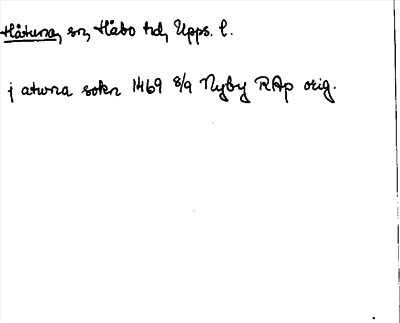 Håtuna, sn, Håbo hd, Upps. l.
j atwna sokn 1469 8/9 Nyby RAp orig.